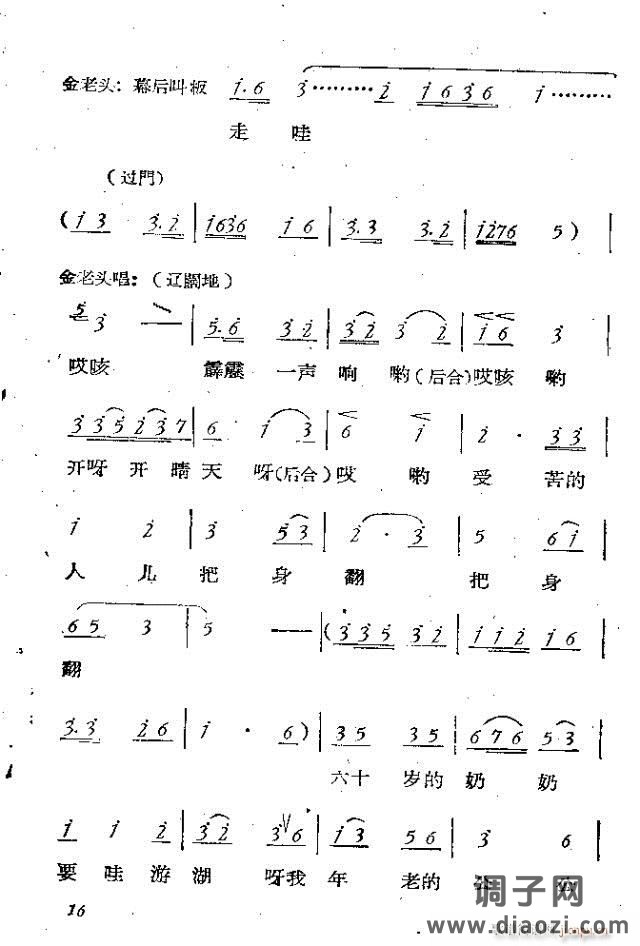 金老头：幕后叫板 1·6 3·········2 1636 1·········
走 哇
（过門）
(13 3·2 | 1636 16 | 3·3 3·2 | 1276 5) |
金老头唱：（辽闊地）
5 3 — | 5·6 32 | 332 32 | 16 3 |
哎咳 霹靂一声响 喲（后合）哎咳 喲
335237 | 6 13 | 6 1 | 2 · 33 |
开呀开晴天 呀（后合）哎 喲 受 苦的
1 2 | 3 53 | 2 · 3 | 5 61 |
人 儿 把 身 翻 把 身
65 3 | 5 — | (335 32 | 112 16 |
翻
3·3 26 | 1 · 6) | 35 35 | 676 53 |
六十 岁的 奶 奶
1 1 2 | 32 36 | 13 56 | 3 6 |
要 哇 游 湖 呀我 年 老的 公 公
16
调子网
www.diaozi.com